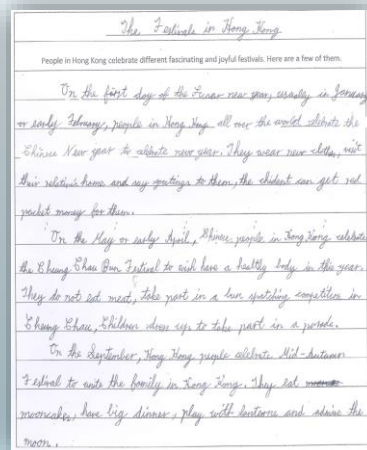 The Festivals in Hong Kong
People in Hong Kong celebrate different fascinating and joyful festivals. Here are a few of them.
On the first day of the Lunar new year, usually in January
or early February, people in Hong Kong all over the world celebrate the
Chinese New year to celebrate new year. They wear new clothes, visit
their relatives home and say greetings to them, the can get red
packet money for them.
On the May or early April, Chinese people in Hong Kong celebrate
the Cheung Chau Bun Festival to wish have a healthy body in this year.
They do not eat meat, take part in a bun competition in
Cheung Chau, Children dress up to take part in a parade.
On the September, Hong Kong people celebrate Mid-Autumn
Festival to unite the family in Hong Kong. They eat
mooncakes, have big dinner, play with lanterns and admire the
moon.